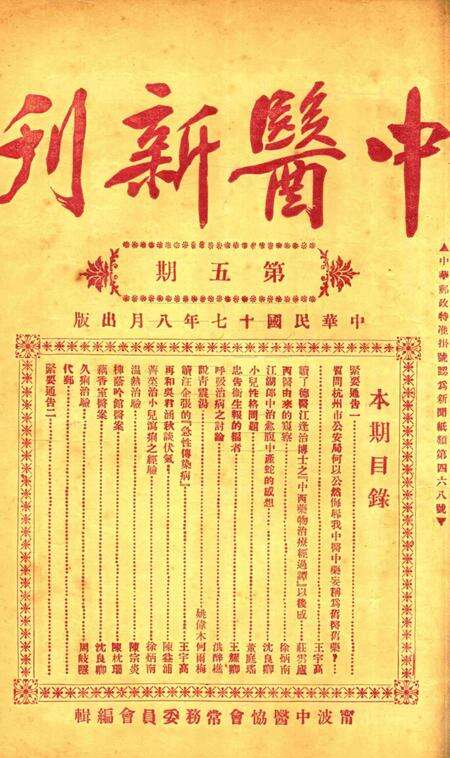 中醫新刊
第五期
中華民國十七年八月出版
▲中華郵政特准掛號認爲新聞紙類第四六八號▼
本期目錄
緊要通告一
質問杭州市公安局何以公然侮辱我中醫中藥妄稱爲舊醫舊藥?…王宇高
讀了德醫江逢治博士之『中西藥物治療經過譚』以後感…莊雲廬
西醫由來的窺察…徐炳南
江湖郎中治愈腹中產蛇的感想…沈良卿
小兒性格問題…董庭瑤
忠告衛生報的編者…王耀卿
呼吸治病之討論…洪醉樵
說青震湯…姚偉木何雨梅
讀汪企張的『急性傳染病』…王宇高
再和吳君涵秋談伏氣…陳益浦
菁菜治小兒瀉痢之經驗…徐炳南
溫熱治驗…陳宗炎
椿蔭吟館醫案…陳枕瑞
藕香室醫案…沈良卿
久痢治驗…周岐隱
代郵
緊要通告二
甯波中醫協會常務委員會編輯